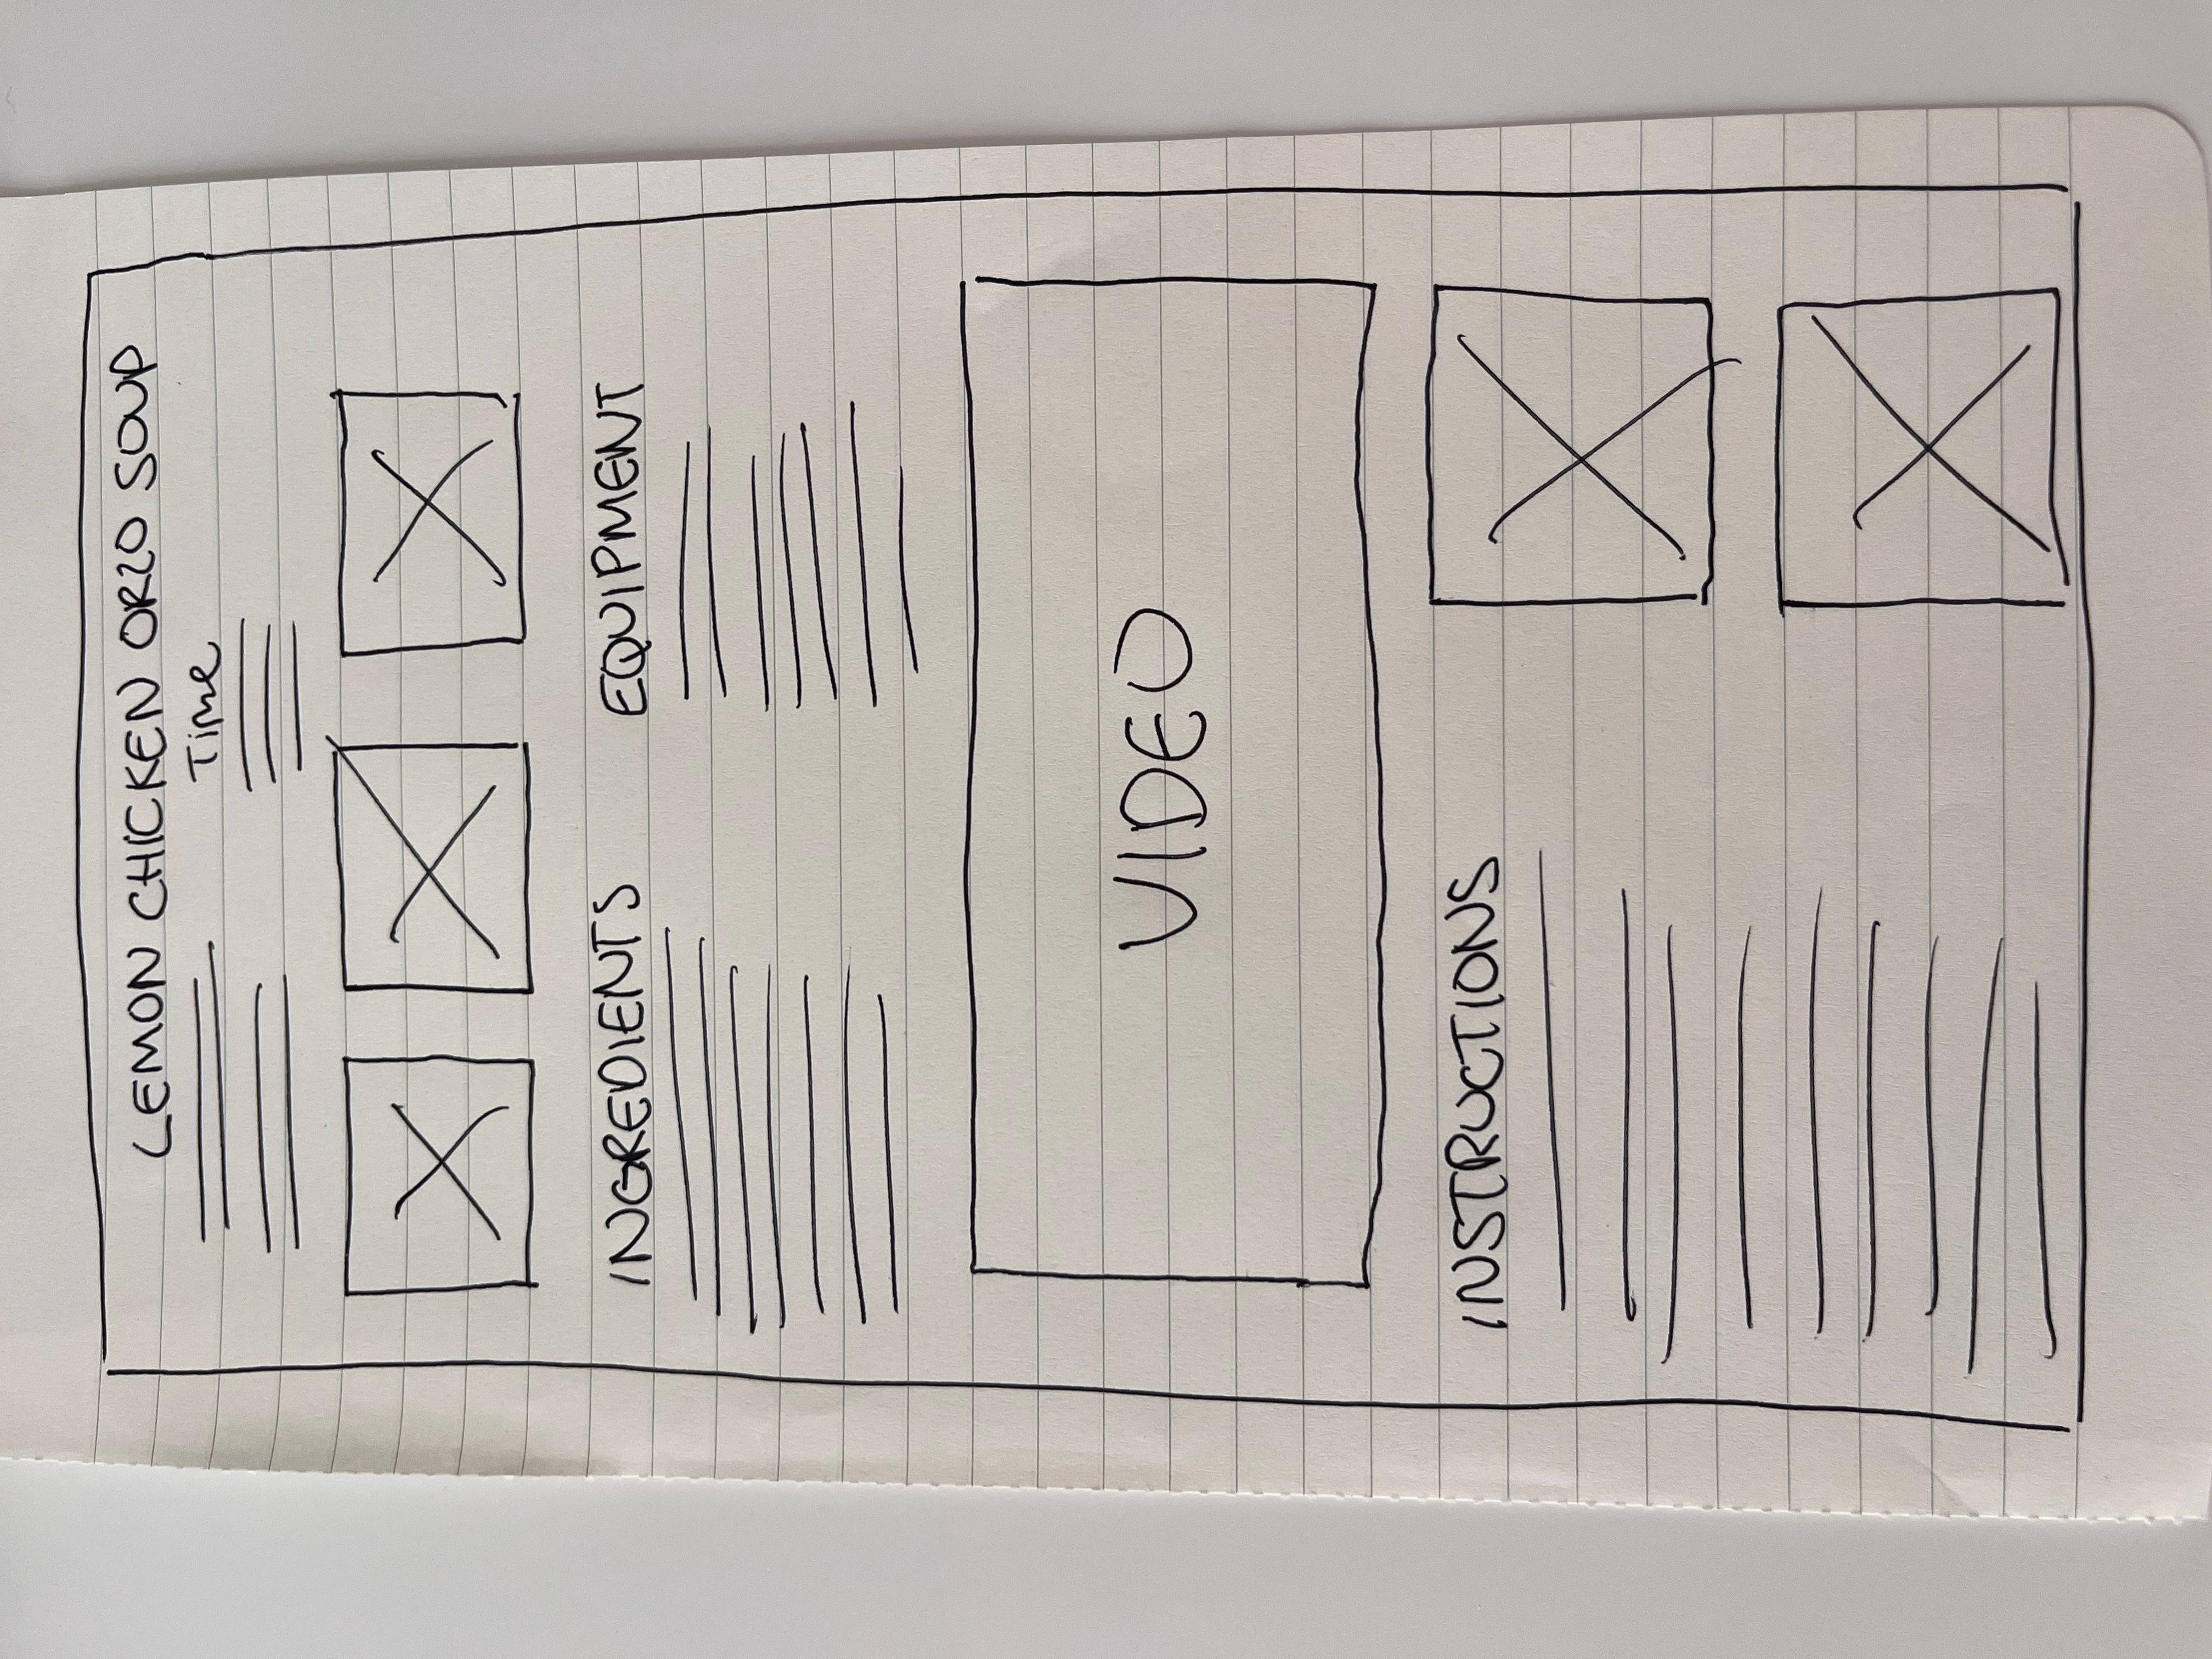 LEMON CHICKEN ORZO SOUP
Time
INGREDIENTS
EQUIPMENT
VIDEO
INSTRUCTIONS